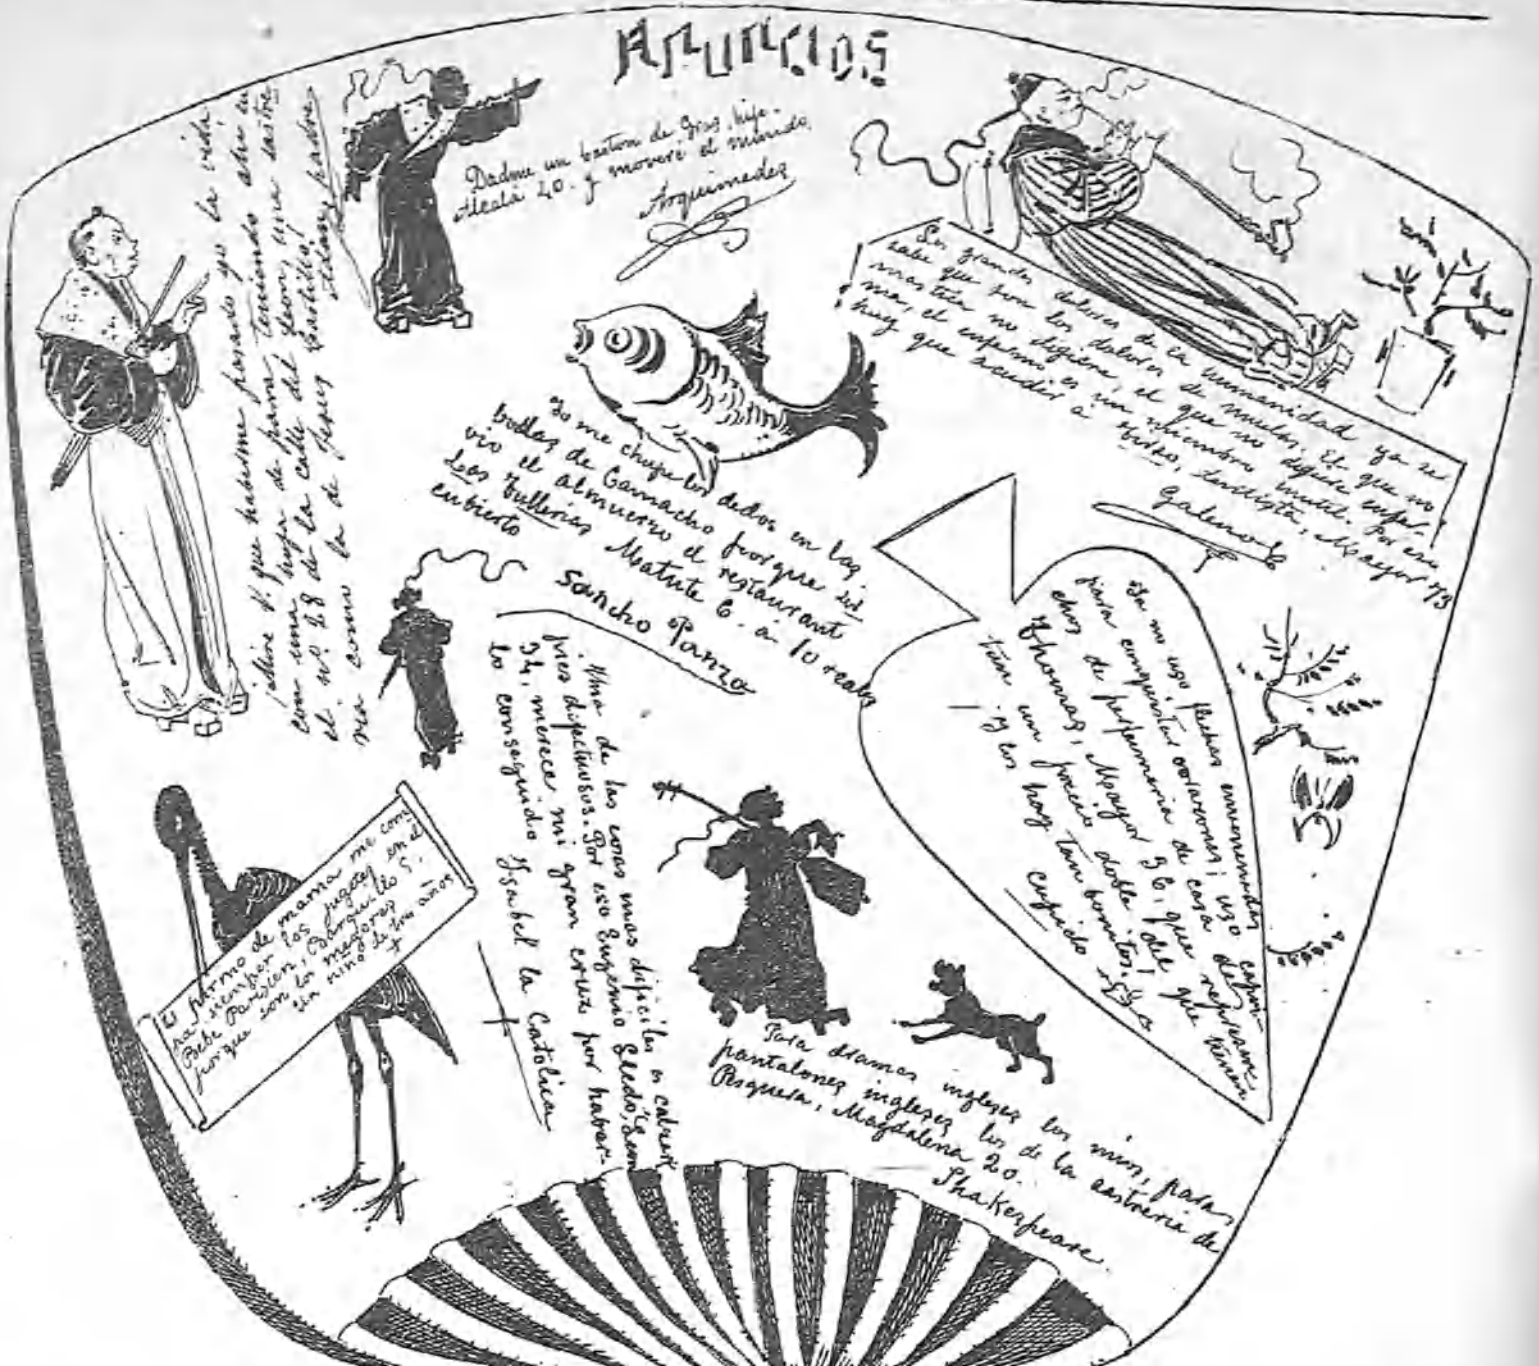 ANUNCIOS
Dadme un baston de Gros, hijo.
Alcalá 40. y moveré el mundo
Arquimedes
Mire V. que haberme pasado yo la vida
con una hoja de parra teniendo ahi en
el nº 28 de la calle del Leon, una sastre
ria como la de Jesus Castillo,
Adan, padre
Los grandes dolores de la humanidad ya se
sabe que son los dolores de muelas. El que no
mastica no digiere, el que no digiere enfer-
ma, el enfermo es un miembro inutil. Por eso
hay que acudir á Tirso, dentista, Mayor 73
Galeno
Yo me chupe los dedos en las
bodas de Camacho porque sir
vio el almuerzo el restaurant
Las Tullerias Matute 6. á 10 reales
cubierto
Sancho Panza
Ya no uso flechas envenenadas
para conquistar corazones; uso cajon-
ches de perfumeria de casa de
Thomas, Mayor 36, que represen-
tan un precio doble del que tienen
y los hay tan bonitos!
Cupido
Una de las cosas mas dificiles es calzar
pies defectuosos. Por eso Eugenio
34, merece mi gran cruz por haber-
lo conseguido Ysabel la Católica
El purmo de mama me com
pra siempre los jugetes en el
Bebé Parisien, Barquillo 5.
porque son los mejores
Un niño de tres años
Para dramas ingleses los mios, para
pantalones ingleses los de la sastreria de
Pesquera, Magdalena 20.
Shakespeare